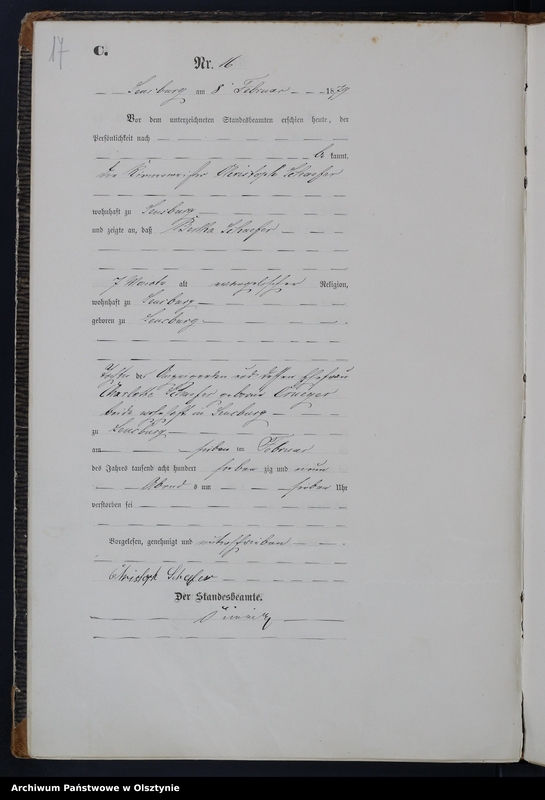 17
C.
Nr. 16
Sensburg am 8 Februar 1879
Vor dem unterzeichneten Standesbeamten erschien heute, der
Persönlichkeit nach
be kannt,
der Christoph Schaefer
wohnhaft zu Sensburg
und zeigte an, daß Bertha Schaefer
7 Monate alt evangelischer Religion,
wohnhaft zu Sensburg
geboren zu Sensburg
Tochter des und dessen Ehefrau
Charlotte Schaefer geborne Krueger
beide wohnhaft in Sensburg
zu Sensburg
am sieben ten Februar
des Jahres tausend acht hundert sieben zig und neun
Abend s um sieben Uhr
verstorben sei
Vorgelesen, genehmigt und unterschrieben
Christoph Schefer
Der Standesbeamte.
Archiwum Państwowe w Olsztynie